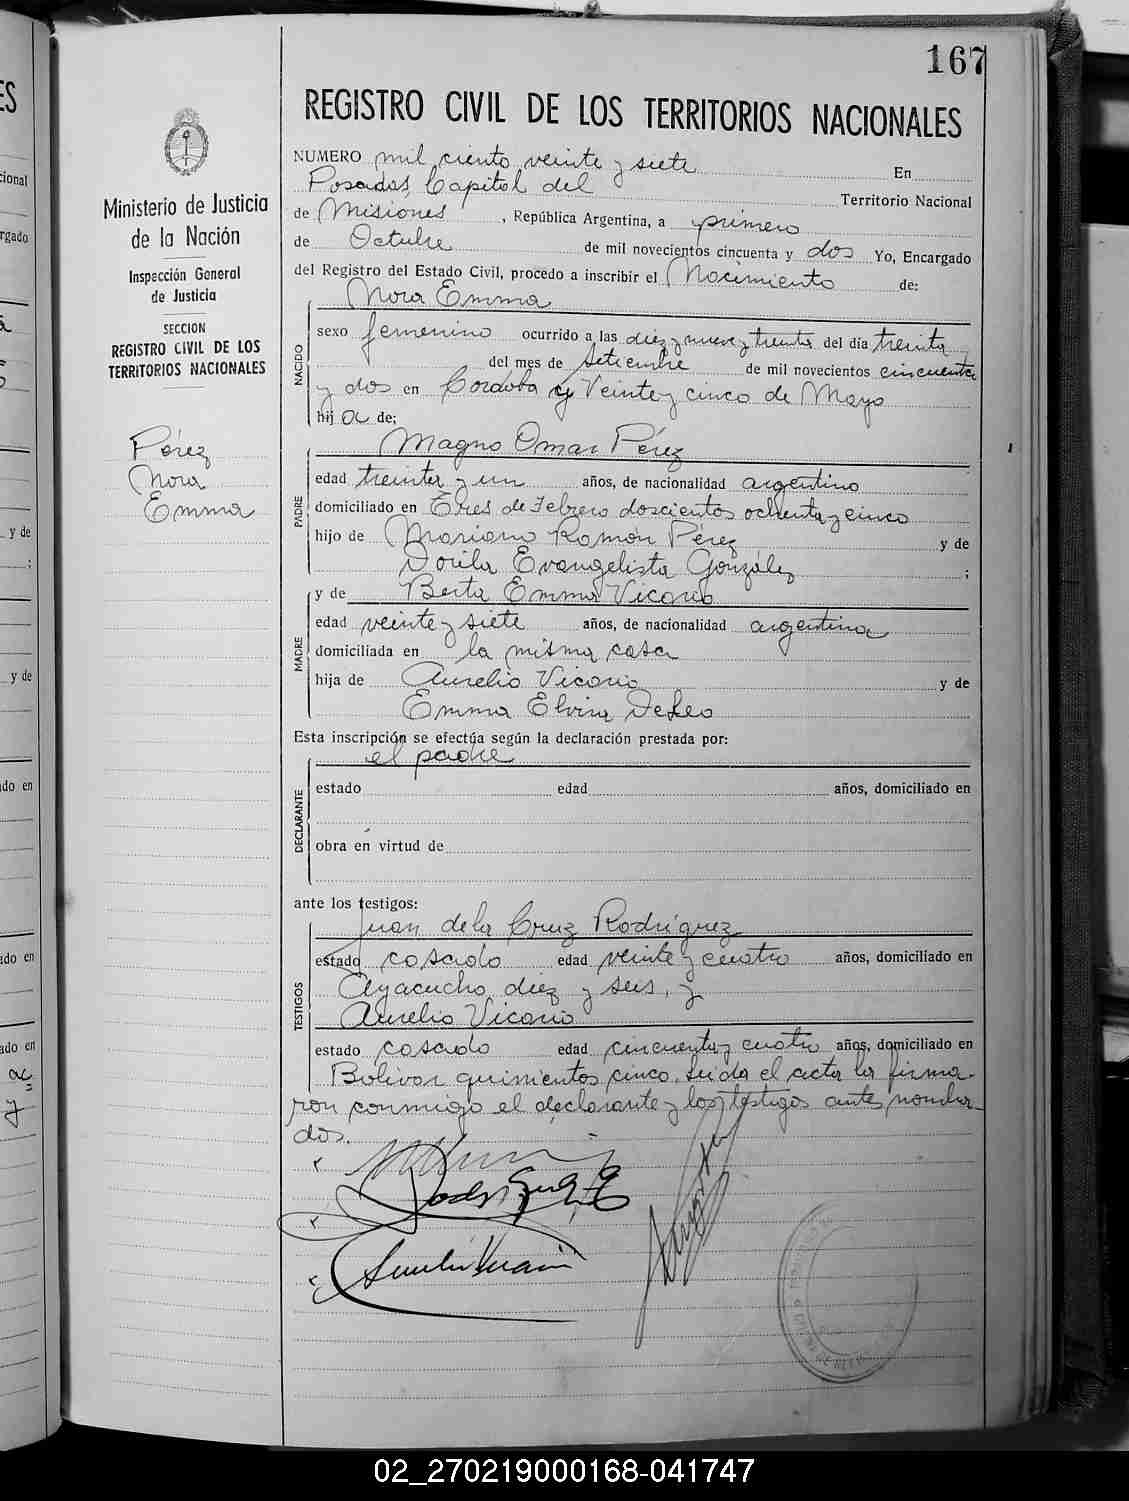 167
REGISTRO CIVIL DE LOS TERRITORIOS NACIONALES
Ministerio de Justicia
de la Nación
Inspección General
de Justicia
SECCION
REGISTRO CIVIL DE LOS
TERRITORIOS NACIONALES
Pérez
Nora
Emma
NUMERO mil ciento veinte y siete En
Posadas, Capital del Territorio Nacional
de Misiones, República Argentina, a primero
de Octubre de mil novecientos cincuenta y dos Yo, Encargado
del Registro del Estado Civil, procedo a inscribir el Nacimiento de:
Nora Emma
NACIDO
sexo femenino ocurrido a las diez y nueve y treinta del día treinta
del mes de Setiembre de mil novecientos cincuenta
y dos en Córdoba y Veinte y cinco de Mayo
hija de;
Magno Omar Pérez
PADRE
edad treinta y un años, de nacionalidad argentino
domiciliado en Tres de Febrero doscientos ochenta y cinco
hijo de Mariano Ramón Pérez y de
Dorila Evangelista González ;
y de Berta Emma Vicario
MADRE
edad veinte y siete años, de nacionalidad argentina
domiciliada en la misma casa
hija de Aurelio Vicario y de
Emma Elvira DeLeo
Esta inscripción se efectúa según la declaración prestada por:
el padre
DECLARANTE
estado edad años, domiciliado en
obra en virtud de
ante los testigos:
Juan de la Cruz Rodríguez
TESTIGOS
estado casado edad veinte y cuatro años, domiciliado en
Ayacucho diez y seis, y
Aurelio Vicario
estado casado edad cincuenta y cuatro años, domiciliado en
Bolivar quinientos cinco. Leída el acta la firma-
ron conmigo el declarante y los testigos antes nombra-
dos.
02_270219000168-041747